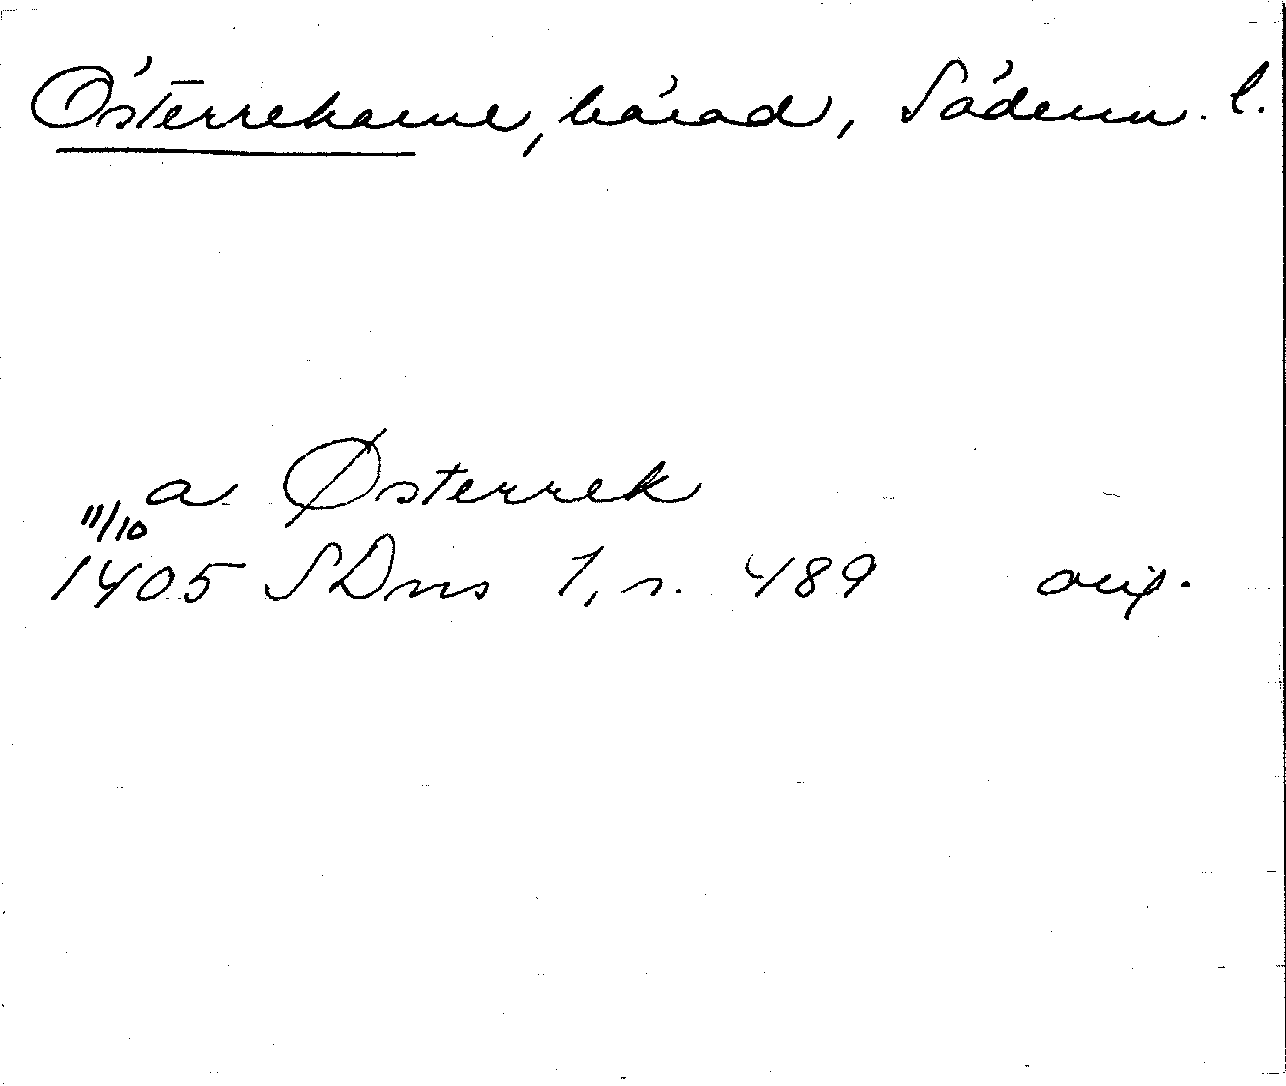 Österrekarne, härad, Söderm. l.
a Østerrek
11/10
1405 SDns 1, n. 489 orig.